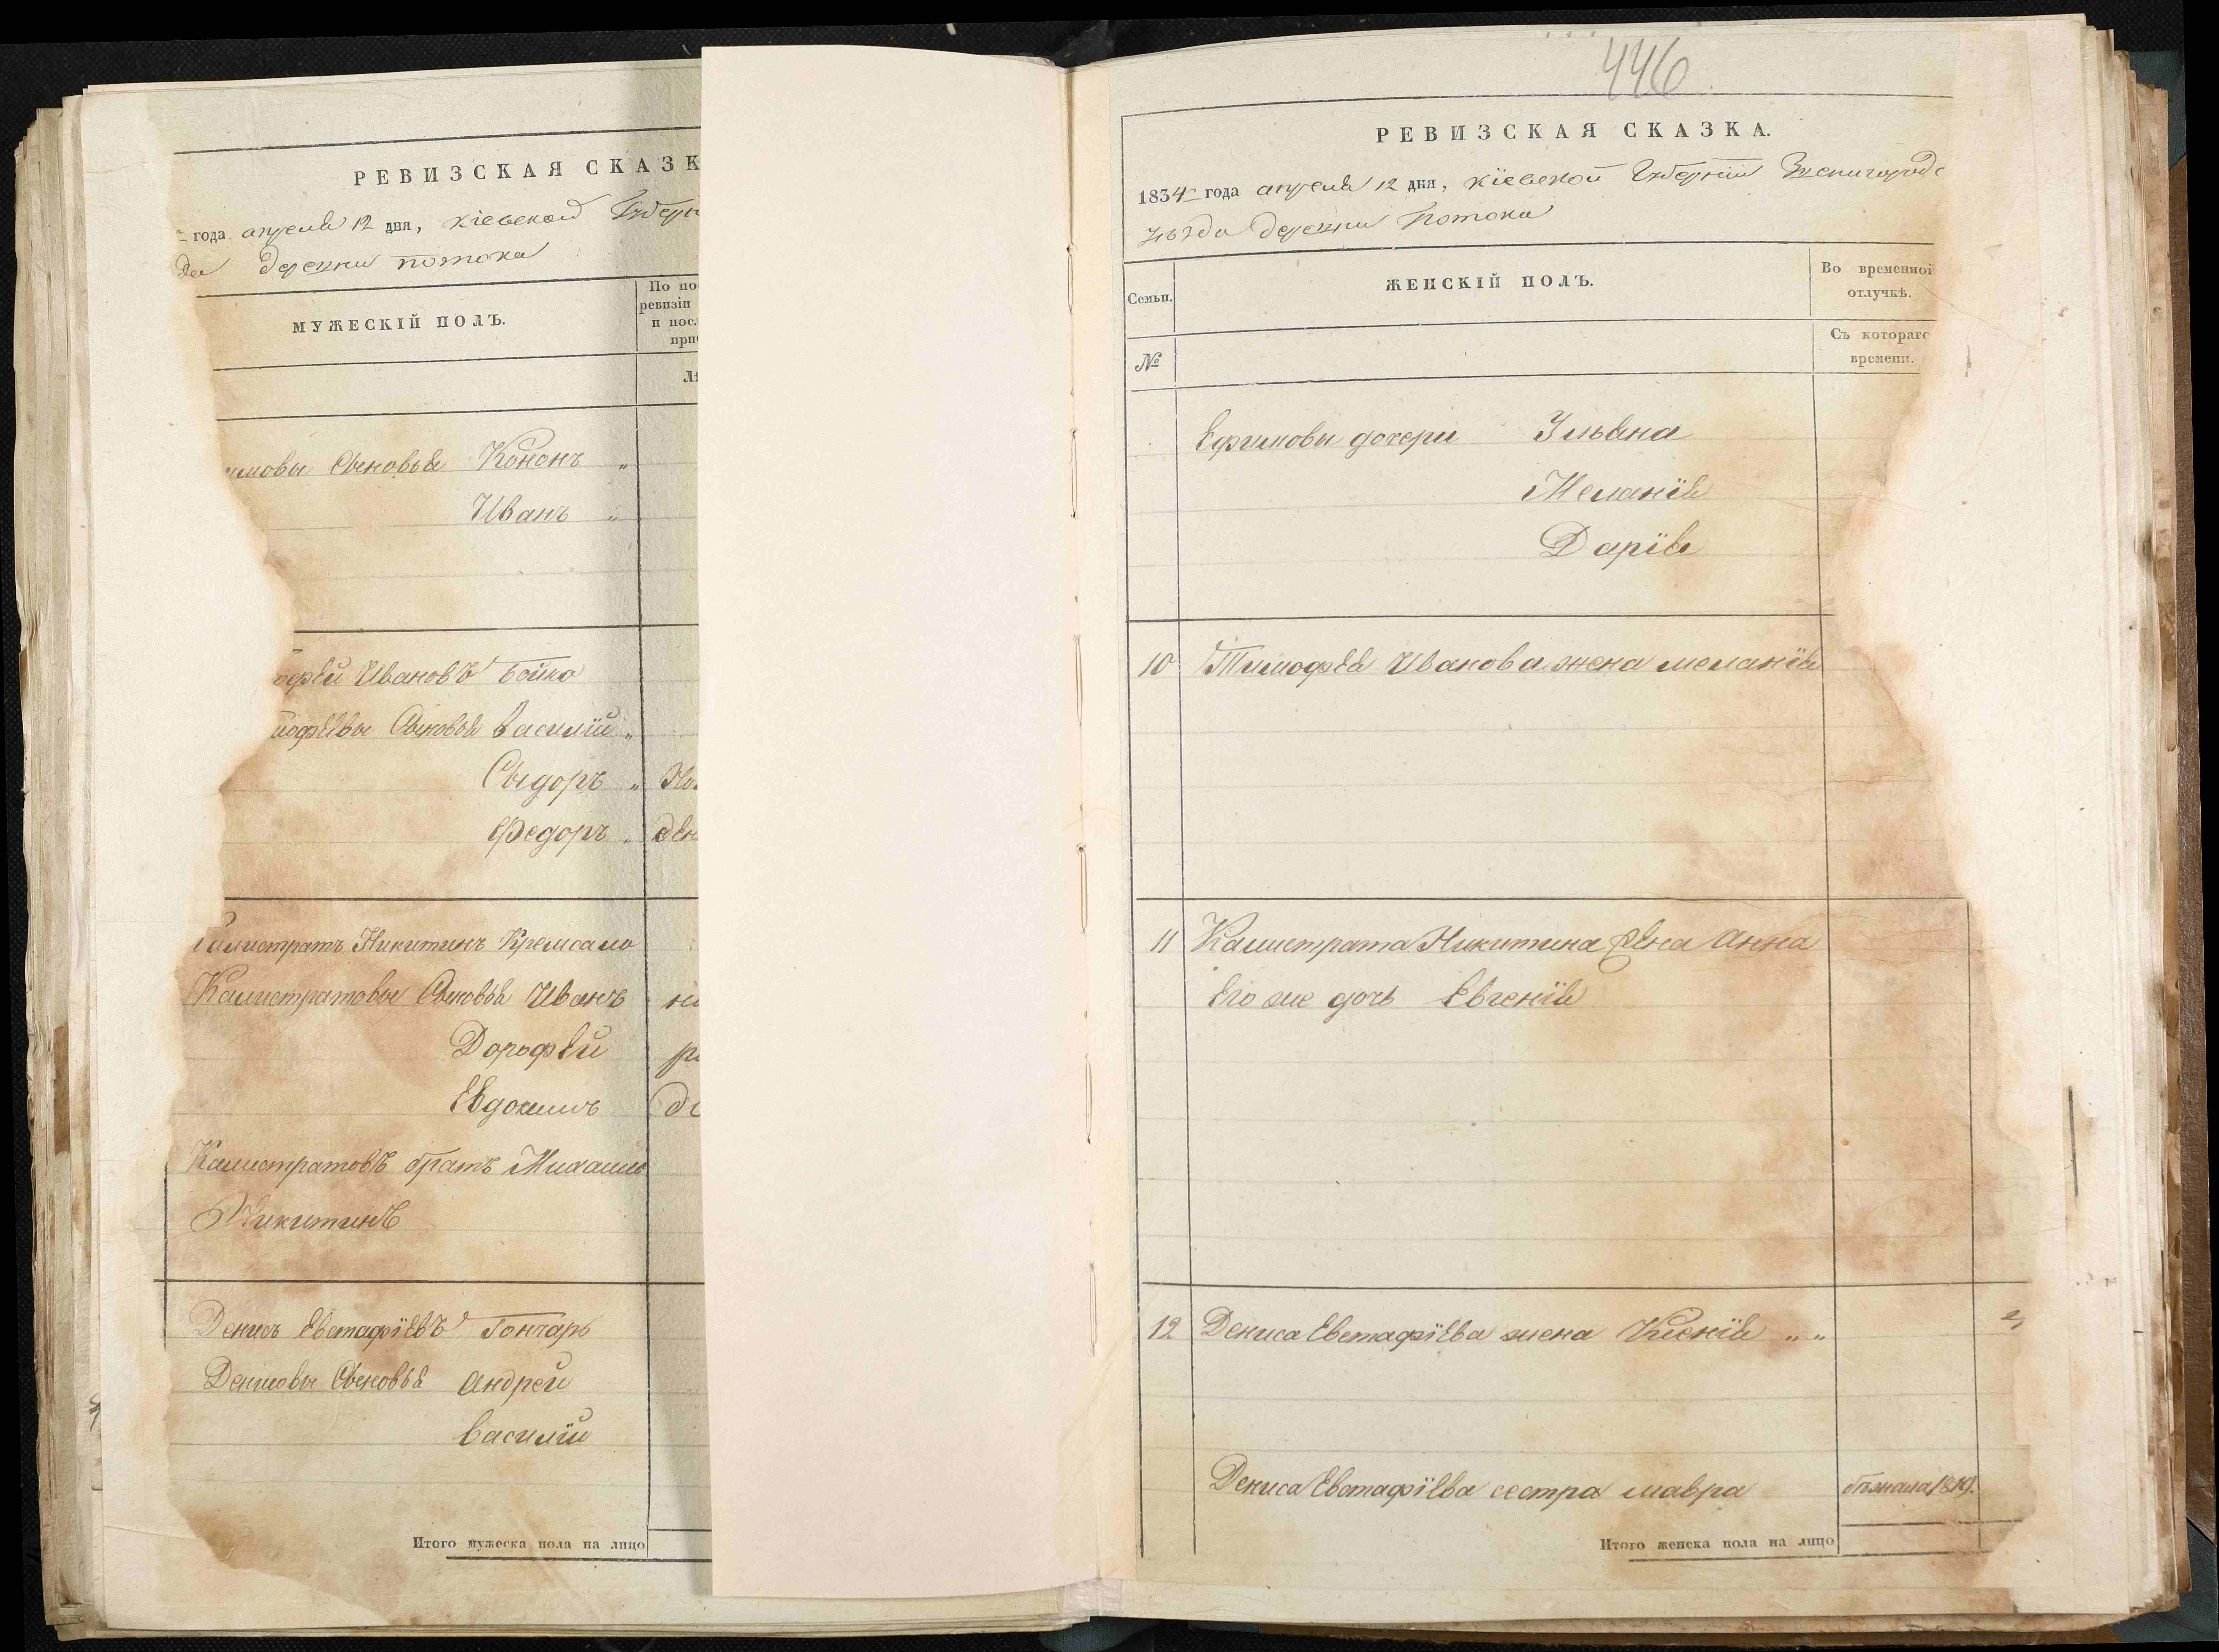 РЕВИЗСКАЯ СКАЗК
года апреля 12 дня, кіевской Губерн
да деревни потока
МУЖЕСКІЙ ПОЛЪ.
По по
ревизіи
и посл
приб
Лѣ
имовы Сыновья Кононъ "
Иванъ "
офѣй Ивановъ Бойко
мофѣевы Сыновья Василій "
Сыдоръ "
Федоръ "
Калистратъ Никитинъ Кремсало
Калистратовы Сыновья Иванъ
Дорофѣй
Евдокимъ
Калистратовъ братъ Михаило
Никитинъ
Денисъ Евстафіевъ Гончаръ
Денисовы Сыновья Андрей
Василій
Итого мужеска пола на лицо
446
РЕВИЗСКАЯ СКАЗКА.
1834 года апреля 12 дня, кіевской Губерніи Звенигородс
уѣзда деревни Потока
Семьи.
ЖЕНСКІЙ ПОЛЪ.
Во временной
отлучкѣ.
№
Съ котораго
времени.
Ефимовы дочери Ульяна
Меланія
Дарія
10 Тимофѣя Иванова жена меланія
11 Калистрата Никитина жена Анна
Его же дочь Евгенія
12 Дениса Евстафіева жена Ксенія " "
Дениса Евстафіева сестра мавра
бѣжала 1819.
Итого женска пола на лицо